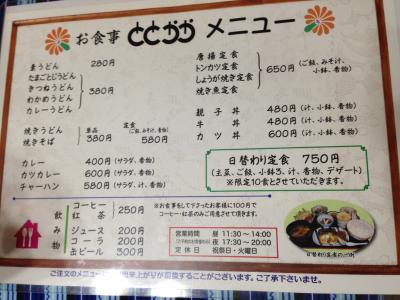 お食事 とことこ メニュー
素うどん 280円
たまごとじうどん
きつねうどん
わかめうどん
カレーうどん
380円
焼きうどん
焼きそば
単品 380円
定食 (ご飯、みそ汁、香物) 580円
カレー 400円(サラダ、香物)
カツカレー 600円(サラダ、香物)
チャーハン 580円(汁、サラダ、香物)
唐揚定食
トンカツ定食
しょうが焼き定食
焼き魚定食
650円(ご飯、みそ汁、小鉢、香物)
親子丼 480円(汁、小鉢、香物)
牛丼 480円(汁、小鉢、香物)
カツ丼 600円(汁、小鉢、香物)
日替わり定食 750円
(主菜、ご飯、小鉢3、汁、香物、デザート)
※限定10食とさせていただきます。
飲み物
コーヒー
紅茶
250円
ジュース 200円
コーラ 200円
缶ビール 300円
※お食事をして下さったお客様に100円で
コーヒー・紅茶のみご用意させて頂きます。
営業時間 昼 11:30〜14:00
夜 17:30〜20:00
定休日 祝祭日・火曜日
日替わり定食の一例
ご注文のメニューに
上がりが前後することがございます。ご了承下さいませ。